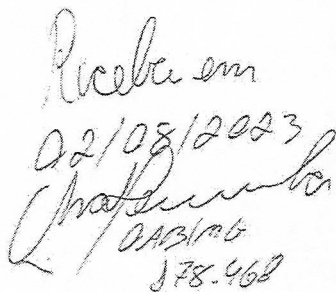 Recebi em
02/08/2023
OAB/MG
178.468